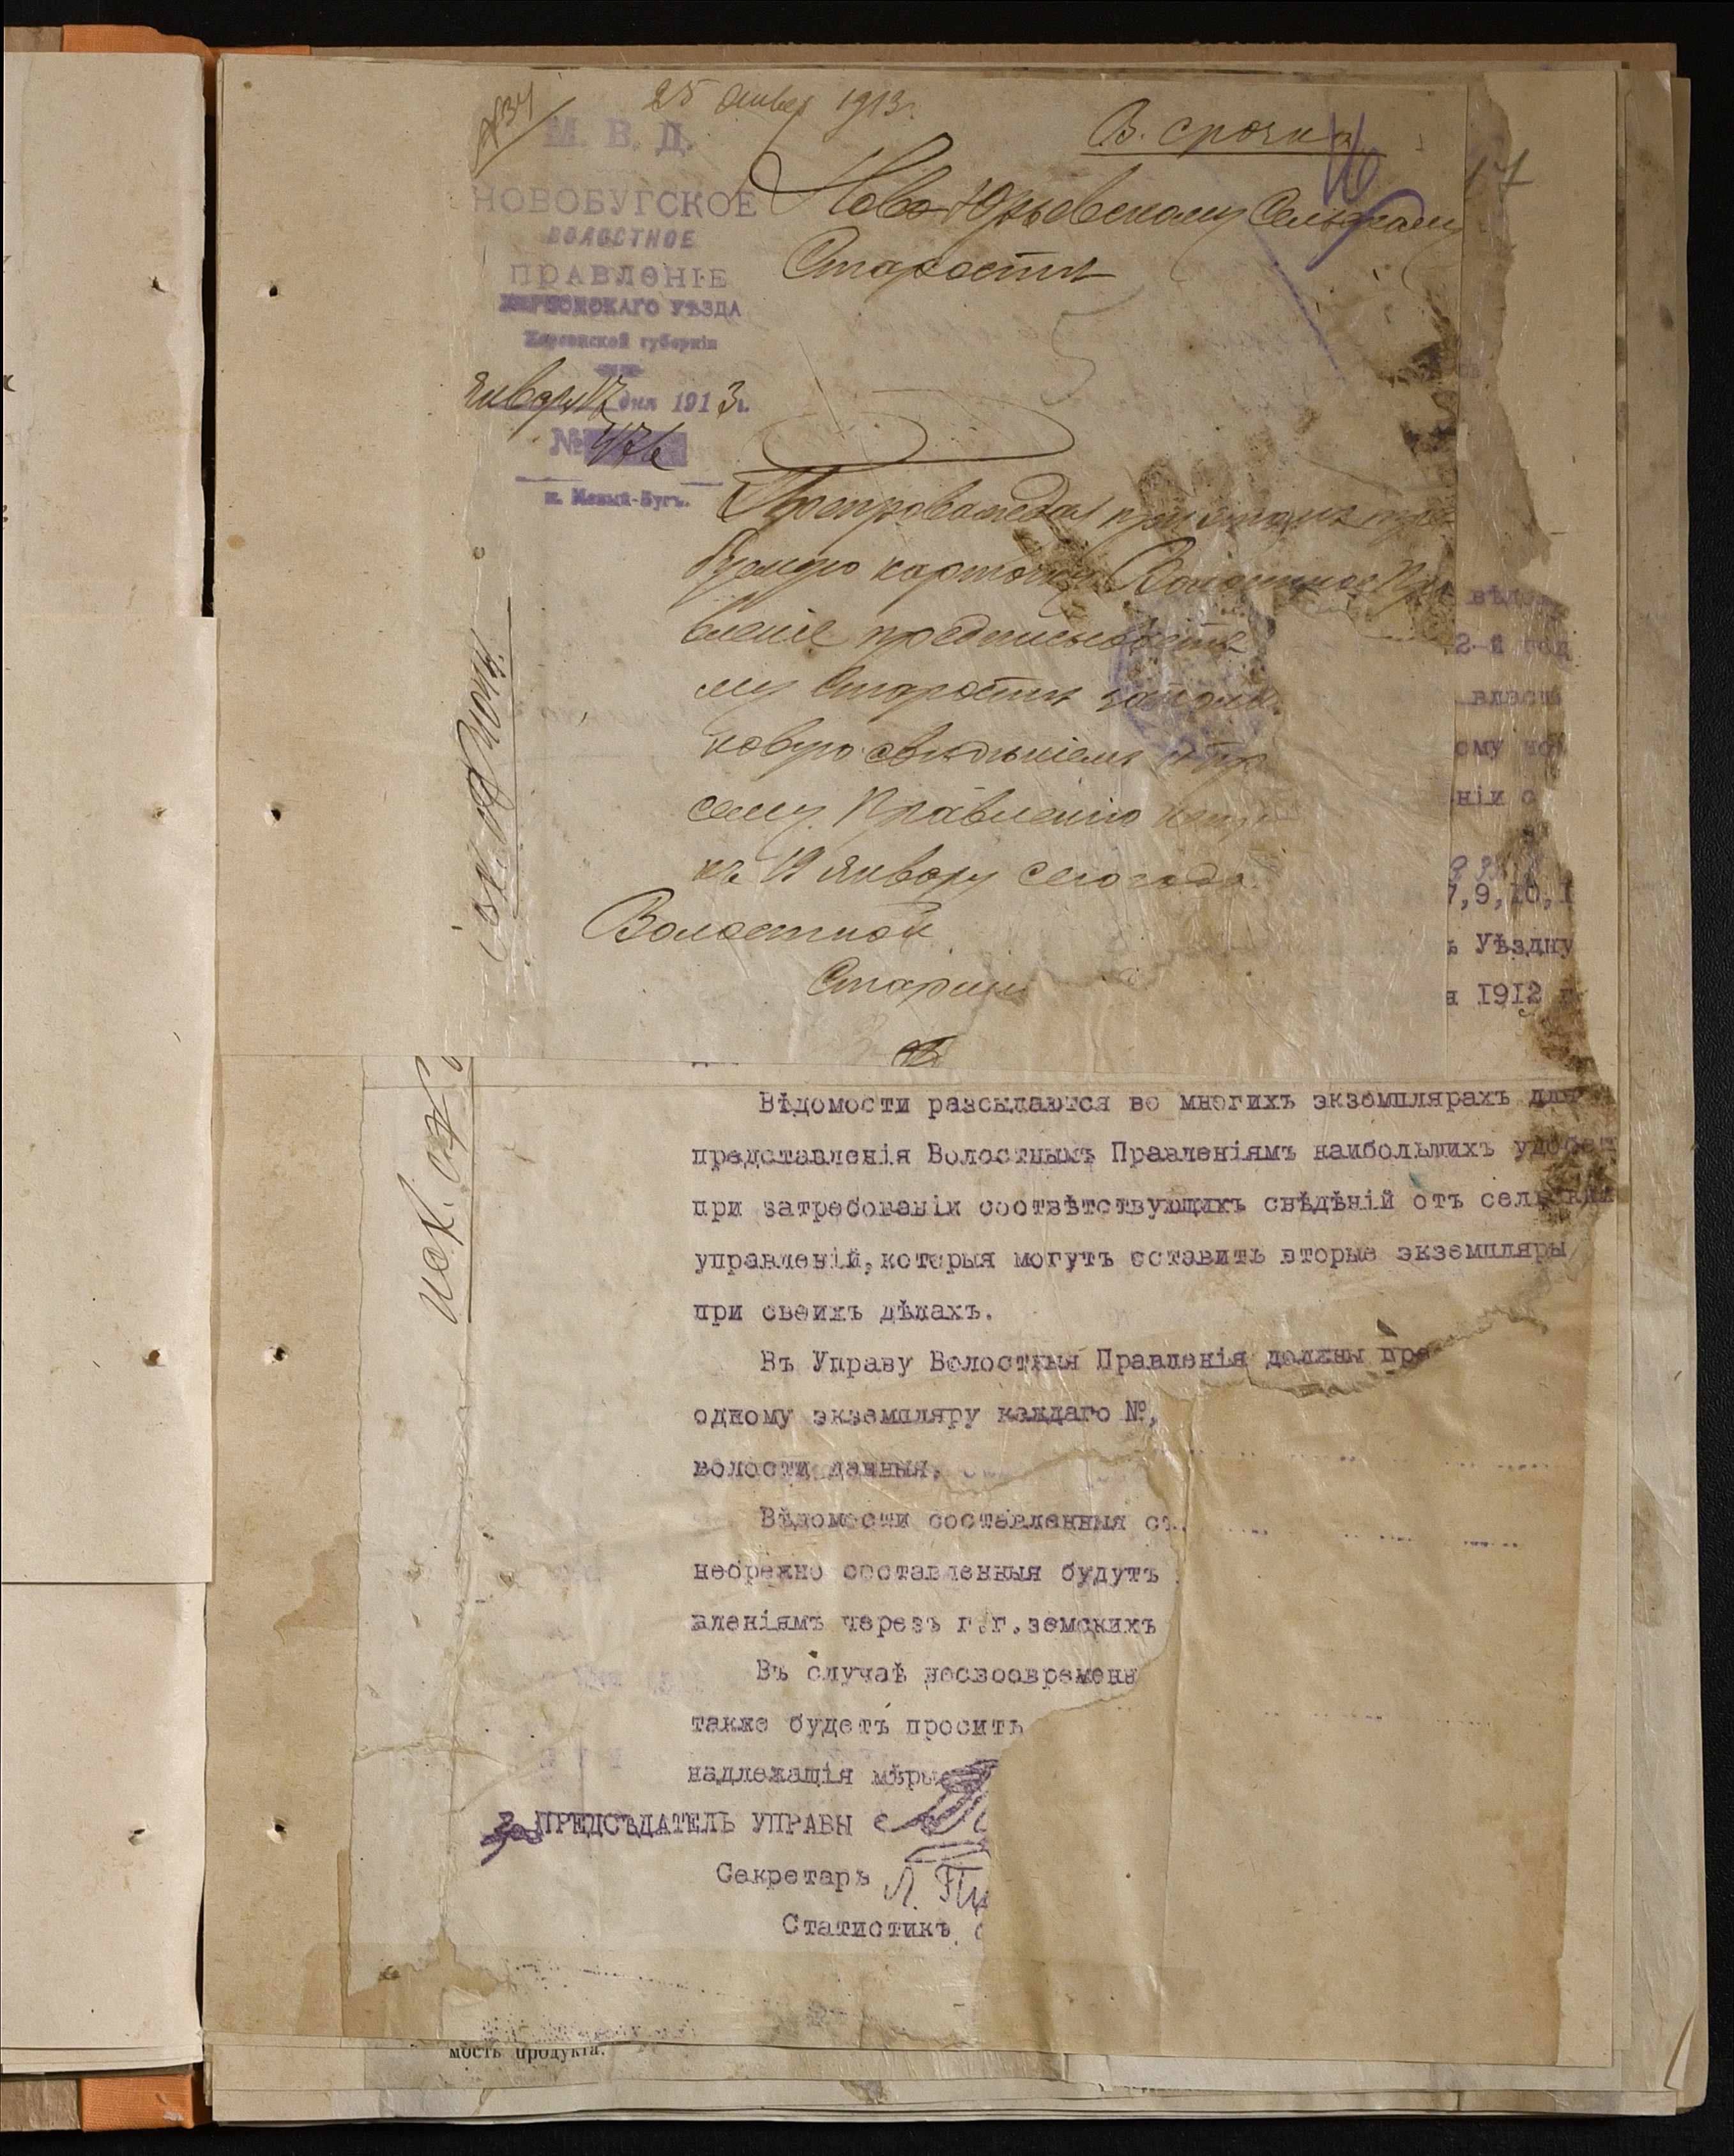 25 январ 1913 г.
В. срочно
17
М. В. Д.
НОВОБУГСКОЕ
ВОЛОСТНОЕ
ПРАВЛЕНІЕ
ХЕРСОНСКАГО УѢЗДА
Херсонской губерніи
Января 17 дня 1913 г.
№ 476
п. Новый-Бугъ.
Ново-Юрьевскому Сельскому
Старостѣ
Препровождая при этомъ тре
буемую карточку Волостное Пра
вленіе предписываетъ
му Старостѣ заполн
ковую свѣдѣніемъ и пр
сему Правленію
къ 19 Январу сего года
Волостной
Старши
исп. 29 Янв.
вѣдо
2-й год
власт
ому но
ніи о
7,9,10,1
ъ Уѣздну
я 1912 г
исп.
Вѣдомости разсылаются во многихъ экземплярахъ для
представленія Волостнымъ Правленіямъ наибольшихъ удобст
при затребованіи соотвѣтствующихъ свѣдѣній отъ сельских
управленій, которыя могутъ оставить вторые экземпляры
при своихъ дѣлахъ.
Въ Управу Волостныя Правленія должны пре
одному экземпляру каждаго №,
волости данныя,
Вѣдомости составленныя с
небрежно составленныя будутъ
вленіямъ черезъ г.г. земскихъ
Въ случаѣ несвоевременн
также будетъ просить
надлежащія мѣры
За ПРЕДСѢДАТЕЛЬ УПРАВЫ
Секретарь Л. Пи
Статистикъ
мость продукта.